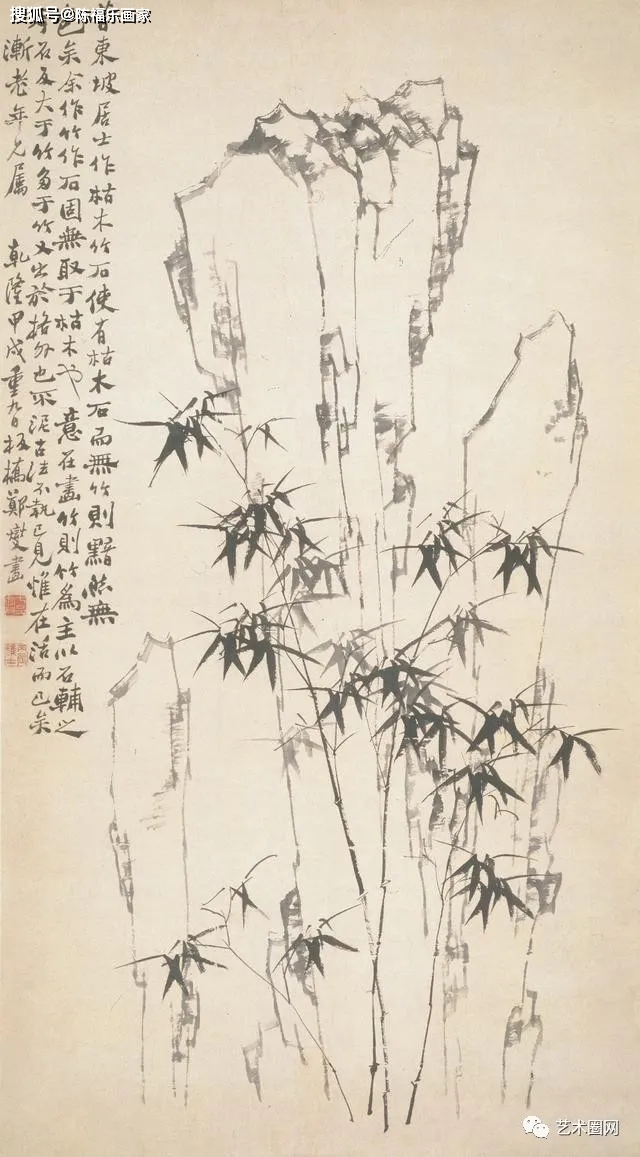 搜狐号@陈福乐画家
昔東坡居士作枯木竹石使有枯木石而無竹則黯然無
色矣余作竹作石固無取于枯木也意在畫竹則竹為主以石輔之
今石反大于竹多于竹又出於格外也不泥古法不執己見惟在活而已矣
漸老年兄屬 乾隆甲戌重九日板橋鄭燮畫
艺术圈网